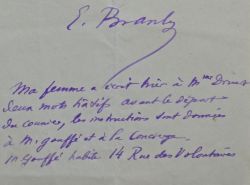 E. Branly
Ma femme a écrit hier à Mme Drouet
deux mots hâtifs avant le départ
du courrier, les instructions sont données
à M. Gouffé et à la Concierge
M Gouffé habite 14 Rue des Volontaires